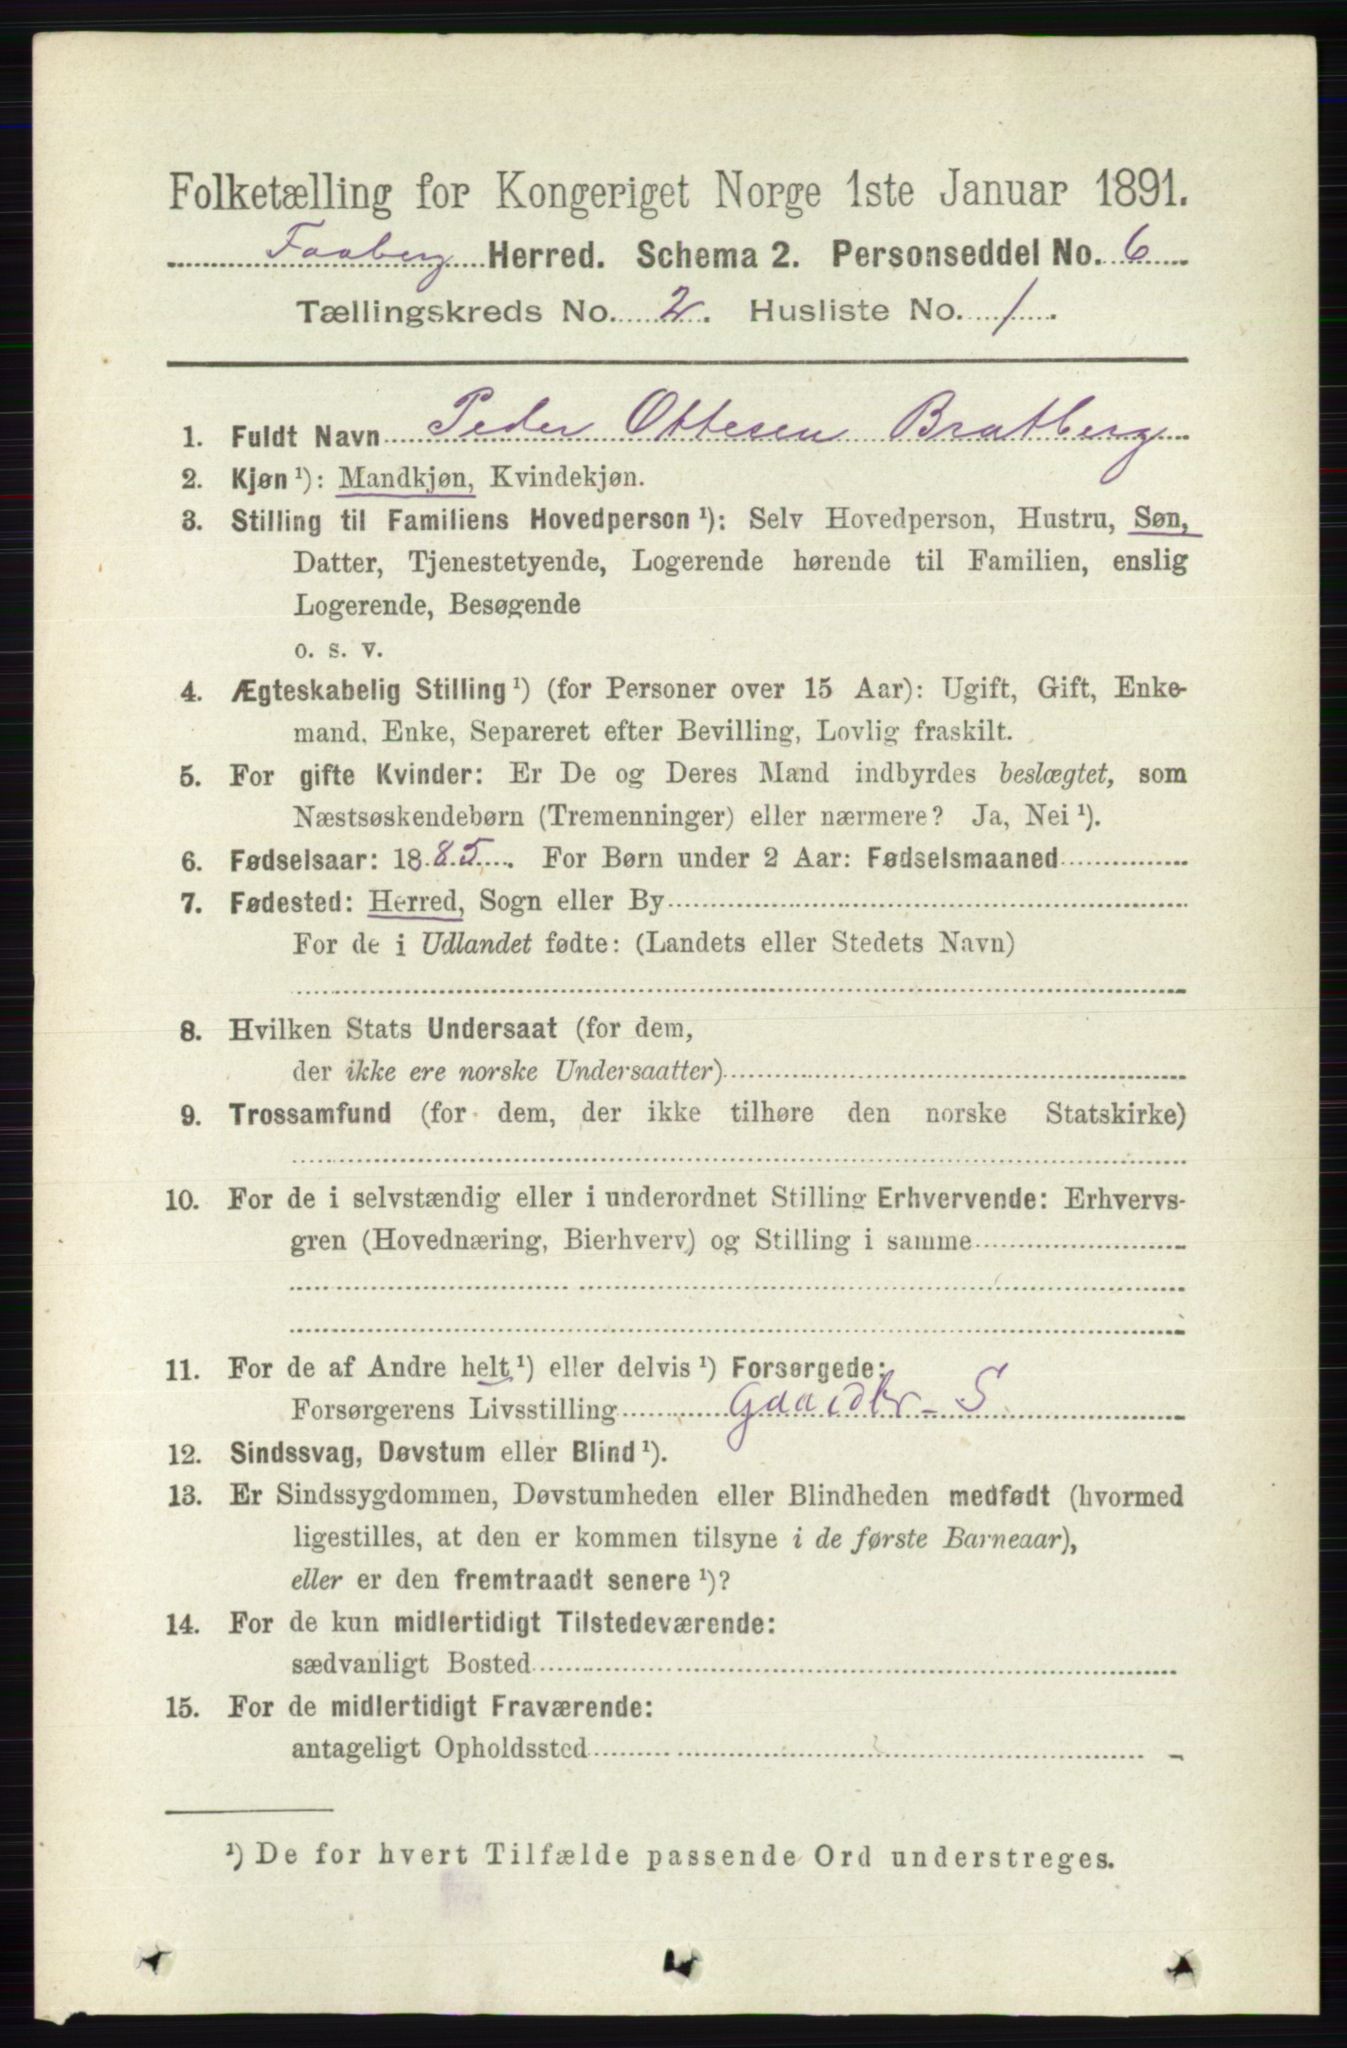 Folketælling for Kongeriget Norge 1ste Januar 1891.
Faaberg Herred. Schema 2. Personseddel No. 6
Tællingskreds No. 2. Husliste No. 1.
1. Fuldt Navn Peder Ottesen Bratberg
2. Kjøn ¹): Mandkjøn, Kvindekjøn.
3. Stilling til Familiens Hovedperson ¹): Selv Hovedperson, Hustru, Søn,
Datter, Tjenestetyende, Logerende hørende til Familien, enslig
Logerende, Besøgende
o. s. v.
4. Ægteskabelig Stilling ¹) (for Personer over 15 Aar): Ugift, Gift, Enke-
mand, Enke, Separeret efter Bevilling, Lovlig fraskilt.
5. For gifte Kvinder: Er De og Deres Mand indbyrdes beslægtet, som
Næstsøskendebørn (Tremenninger) eller nærmere? Ja, Nei ¹).
6. Fødselsaar: 1885. For Børn under 2 Aar: Fødselsmaaned
7. Fødested: Herred, Sogn eller By
For de i Udlandet fødte: (Landets eller Stedets Navn)
8. Hvilken Stats Undersaat (for dem,
der ikke ere norske Undersaatter)
9. Trossamfund (for dem, der ikke tilhøre den norske Statskirke)
10. For de i selvstændig eller i underordnet Stilling Erhvervende: Erhvervs-
gren (Hovednæring, Bierhverv) og Stilling i samme
11. For de af Andre helt ¹) eller delvis ¹) Forsørgede:
Forsørgerens Livsstilling S
12. Sindssvag, Døvstum eller Blind ¹).
13. Er Sindssygdommen, Døvstumheden eller Blindheden medfødt (hvormed
ligestilles, at den er kommen tilsyne i de første Barneaar),
eller er den fremtraadt senere ¹)?
14. For de kun midlertidigt Tilstedeværende:
sædvanligt Bosted
15. For de midlertidigt Fraværende:
antageligt Opholdssted
¹) De for hvert Tilfælde passende Ord understreges.